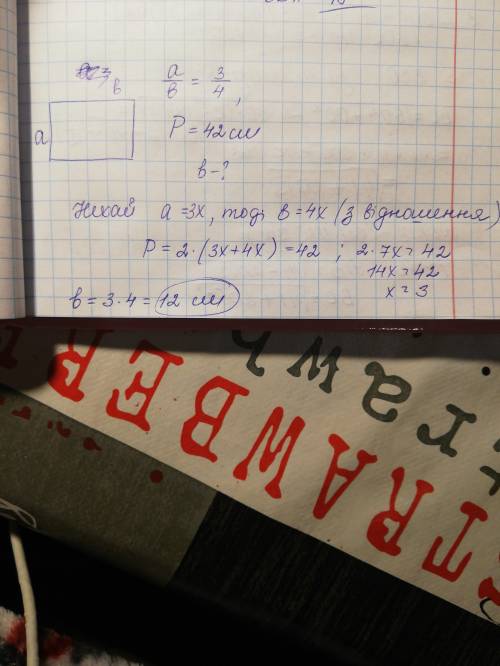 a/в = 3/4,
в
a
P = 42 см
в - ?
Нехай a = 3x, тоді в = 4x (з відношення)
P = 2·(3x+4x) = 42 ; 2·7x = 42
14x = 42
x = 3
в = 3·4 = 12 см
TRAWBER
trawb